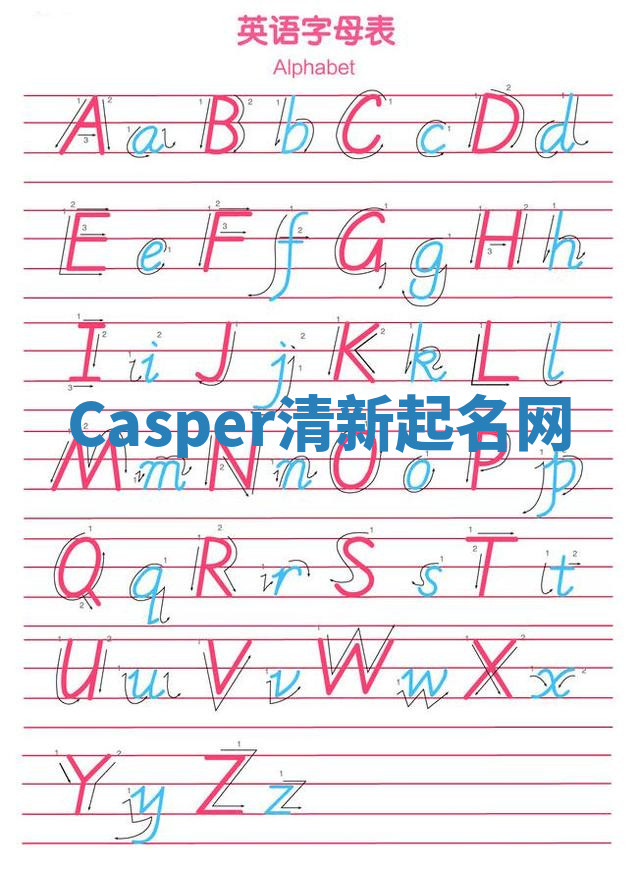 英语字母表
Alphabet
A a B b C c D d
E e F f G g H h
I i J j K k L l
Casper清新起名网
M m N n O o P p
Q q R r S s T t
U u V v W w X x
Y y Z z